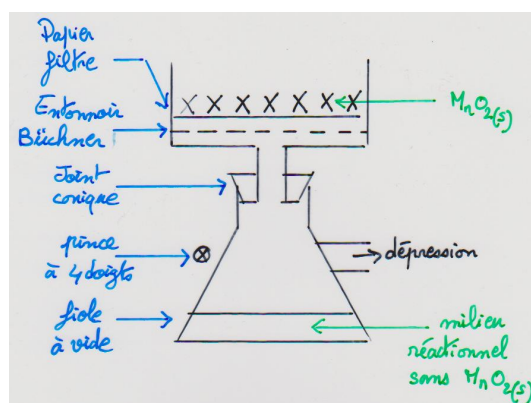 Papier
filtre
Entonnoir
Büchner
Joint
conique
pince
à 4 doigts
fiole
à vide
MnO2(s)
dépression
milieu
réactionnel
sans MnO2(s)